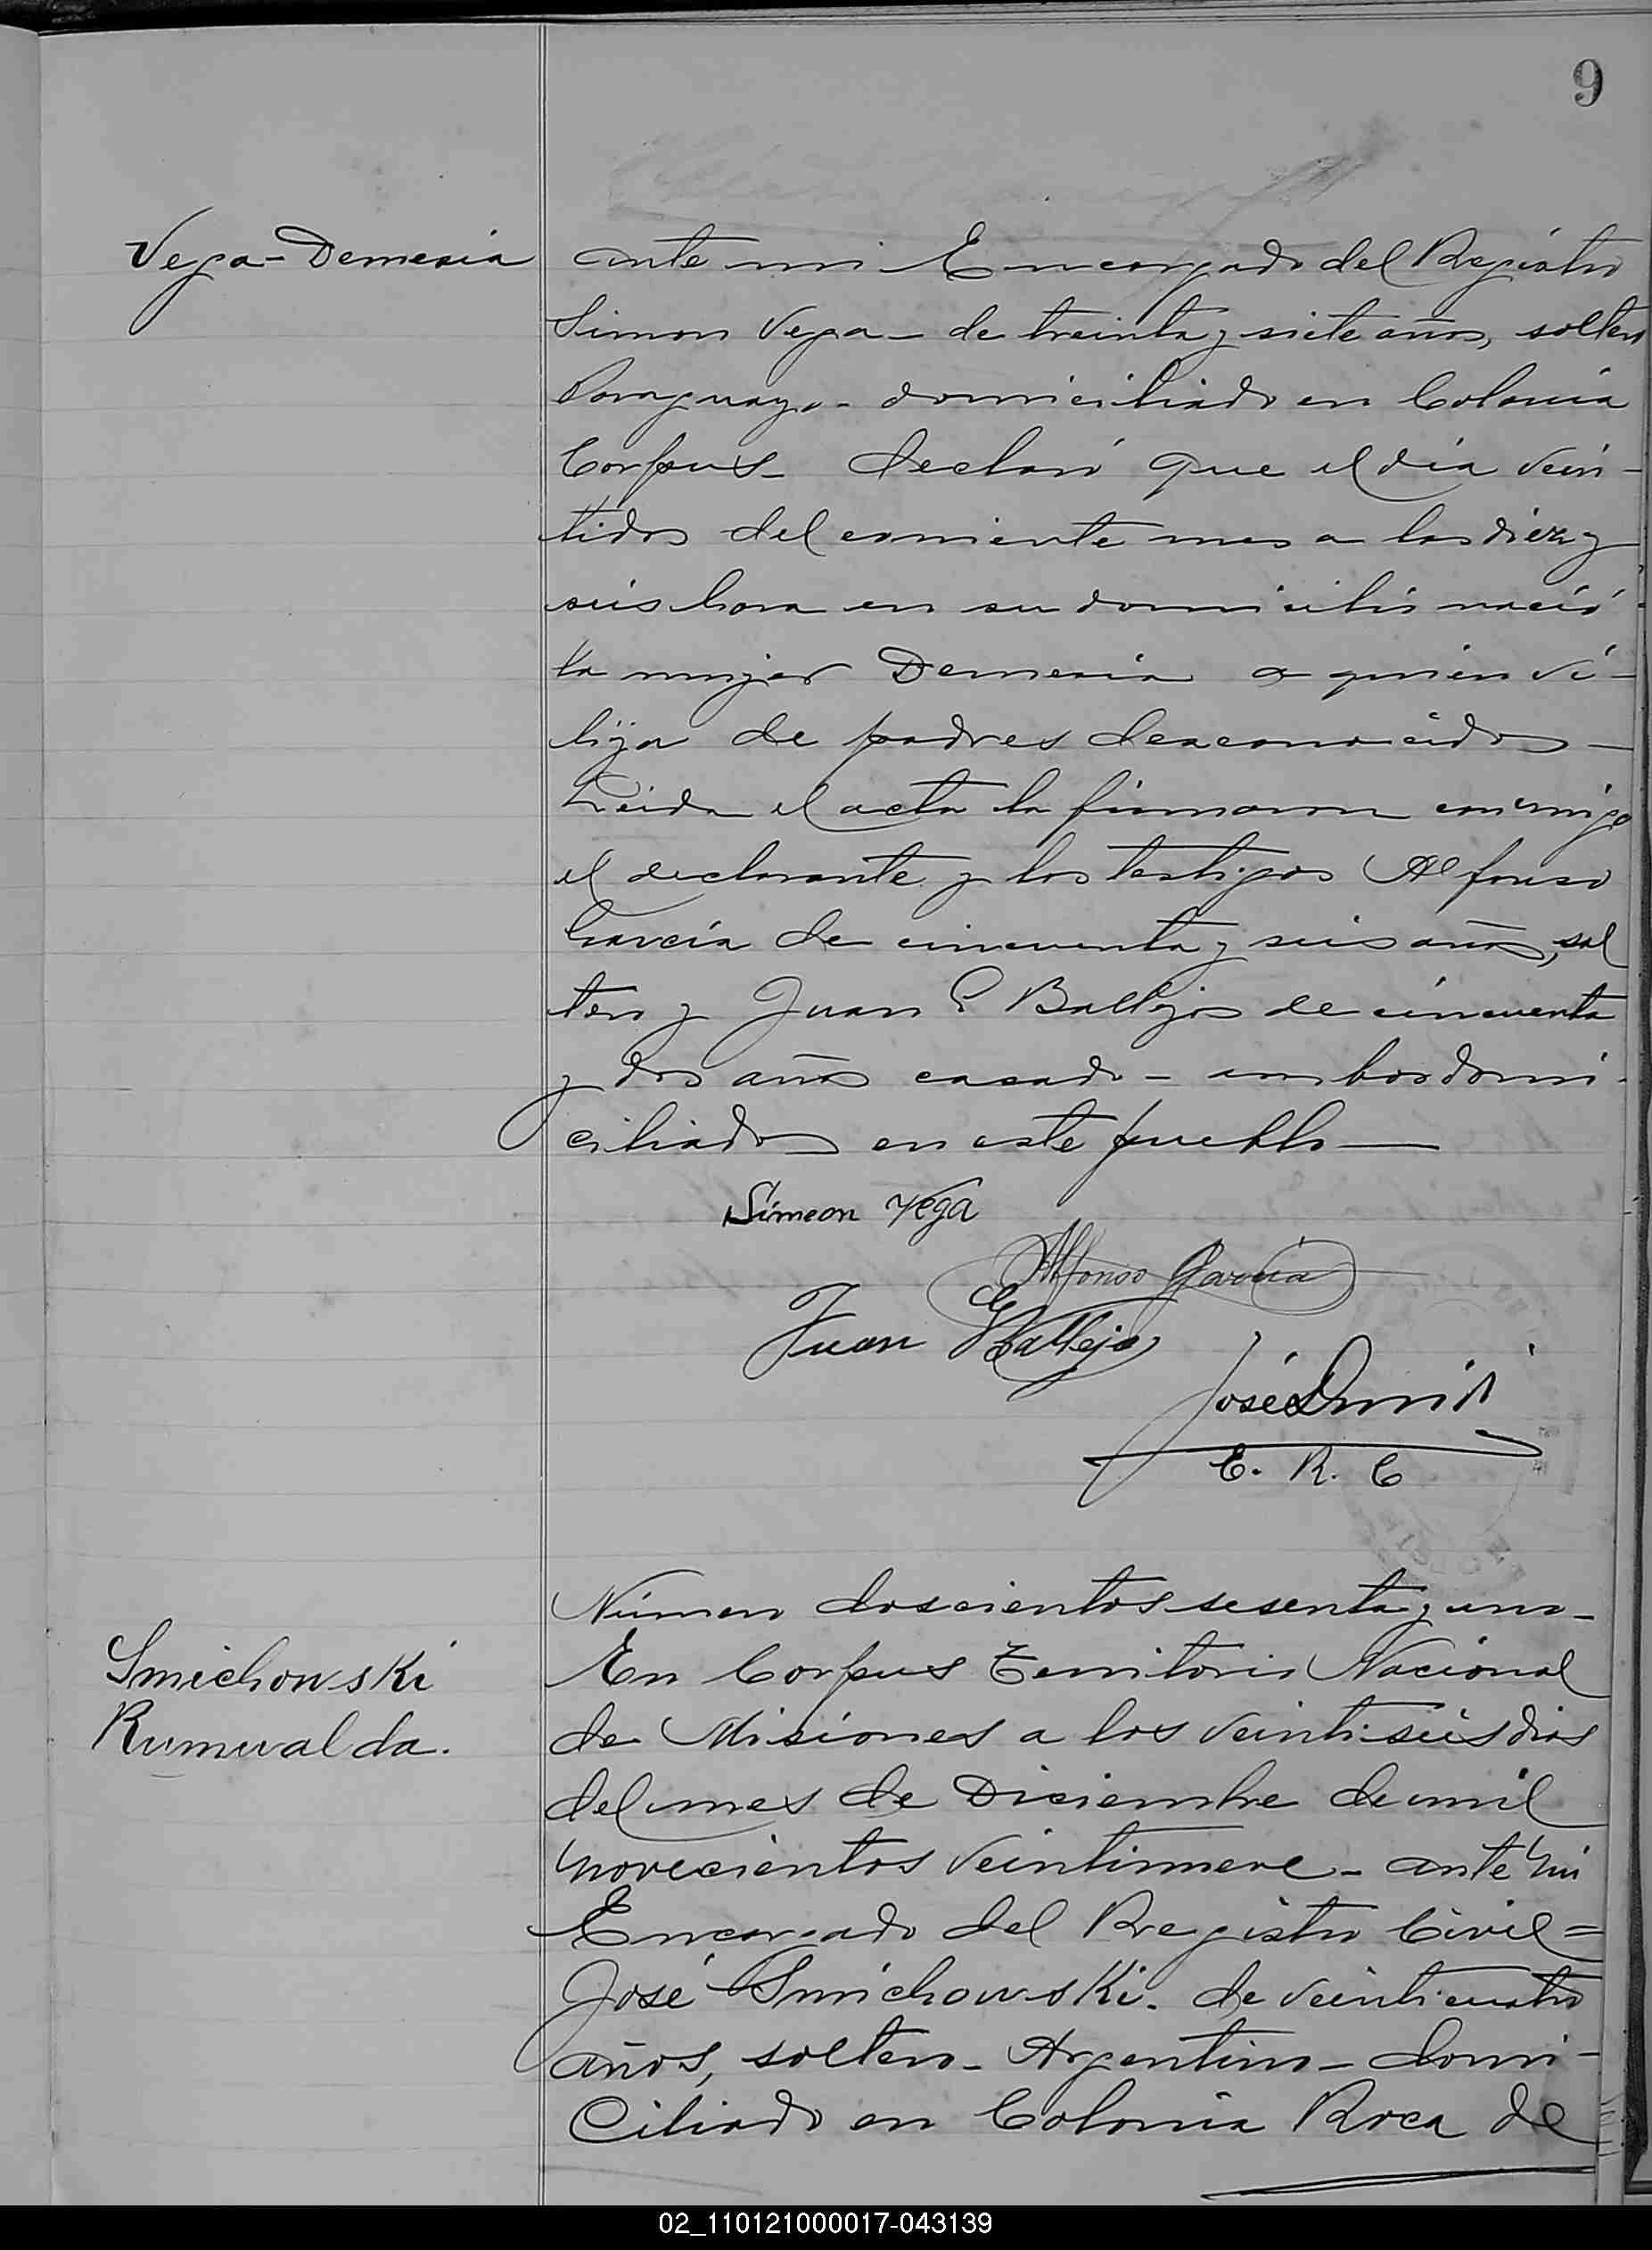 9
Vega - Demesia
ante mi Encargado del Registro
Simon Vega - de treinta y siete años, soltero
Paraguayo - domiciliado en Colonia
Corpus - declaró que el día vein-
tidos del corriente mes a las diez y
seis hora en su domicilio nació
la mujer Demesia a quien vi-
hija de padres desconocidos -
Leida el acta la firmaron conmigo
el declarante y los testigos Alfonso
García de cincuenta y seis años, sol
tero y Juan E Ballejos de cincuenta
y dos años casado - ambos domi-
ciliados en este pueblo
Simeon Vega
Alfonso Garcia
Juan E Vallejos
José
E. R. C
Número doscientos sesenta y uno -
Smichowski
Rumualda.
En Corpus Territorio Nacional
de Misiones a los veintiseis dias
del mes de Diciembre de mil
novecientos veintinueve - ante mi
Encargado del Registro Civil =
José Smichowski. de veinticuatro
años, soltero - Argentino - domi-
ciliado en Colonia Roca de
02_110121000017-043139